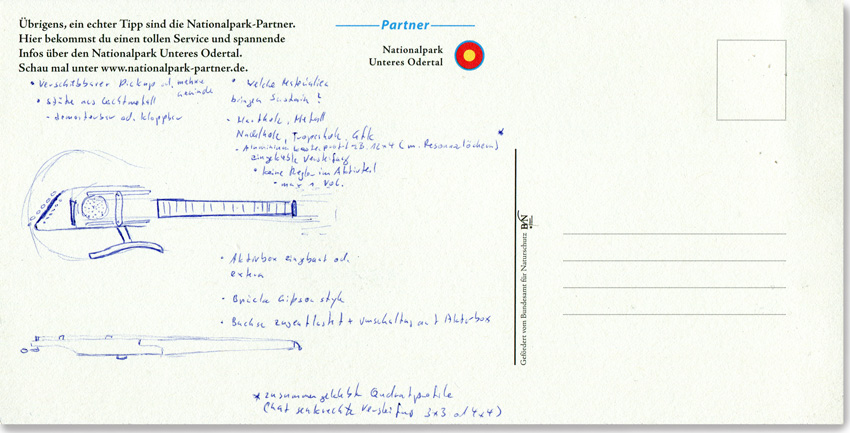 Übrigens, ein echter Tipp sind die Nationalpark-Partner.
Hier bekommst du einen tollen Service und spannende
Infos über den Nationalpark Unteres Odertal.
Schau mal unter www.nationalpark-partner.de.
Partner
Nationalpark
Unteres Odertal
• Verschiebbarer Pickup od. mehrere
• Stütze aus Leichtmetall
- demontierbar od. klappbar
• Welche Materialien
bringen Sustain?
- Hartholz, Metall
Nadelholz, Tropenholz, GfK
- Aluminium z.B. 12x4 (m. Resonanzlöchern) *
eingeklebte Versteifung
• keine Regler im Aktivteil
- max 1 Vol.
• Aktivbox eingbaut od.
extern
• Brücke Gibson style
• Buchse zugentlastet + Umschaltung auf Aktivbox
* zusammengeklebte Quadratprofile
(hat senkrechte Versteifung 3x3 od 4x4)
Gefördert vom Bundesamt für Naturschutz
BfN